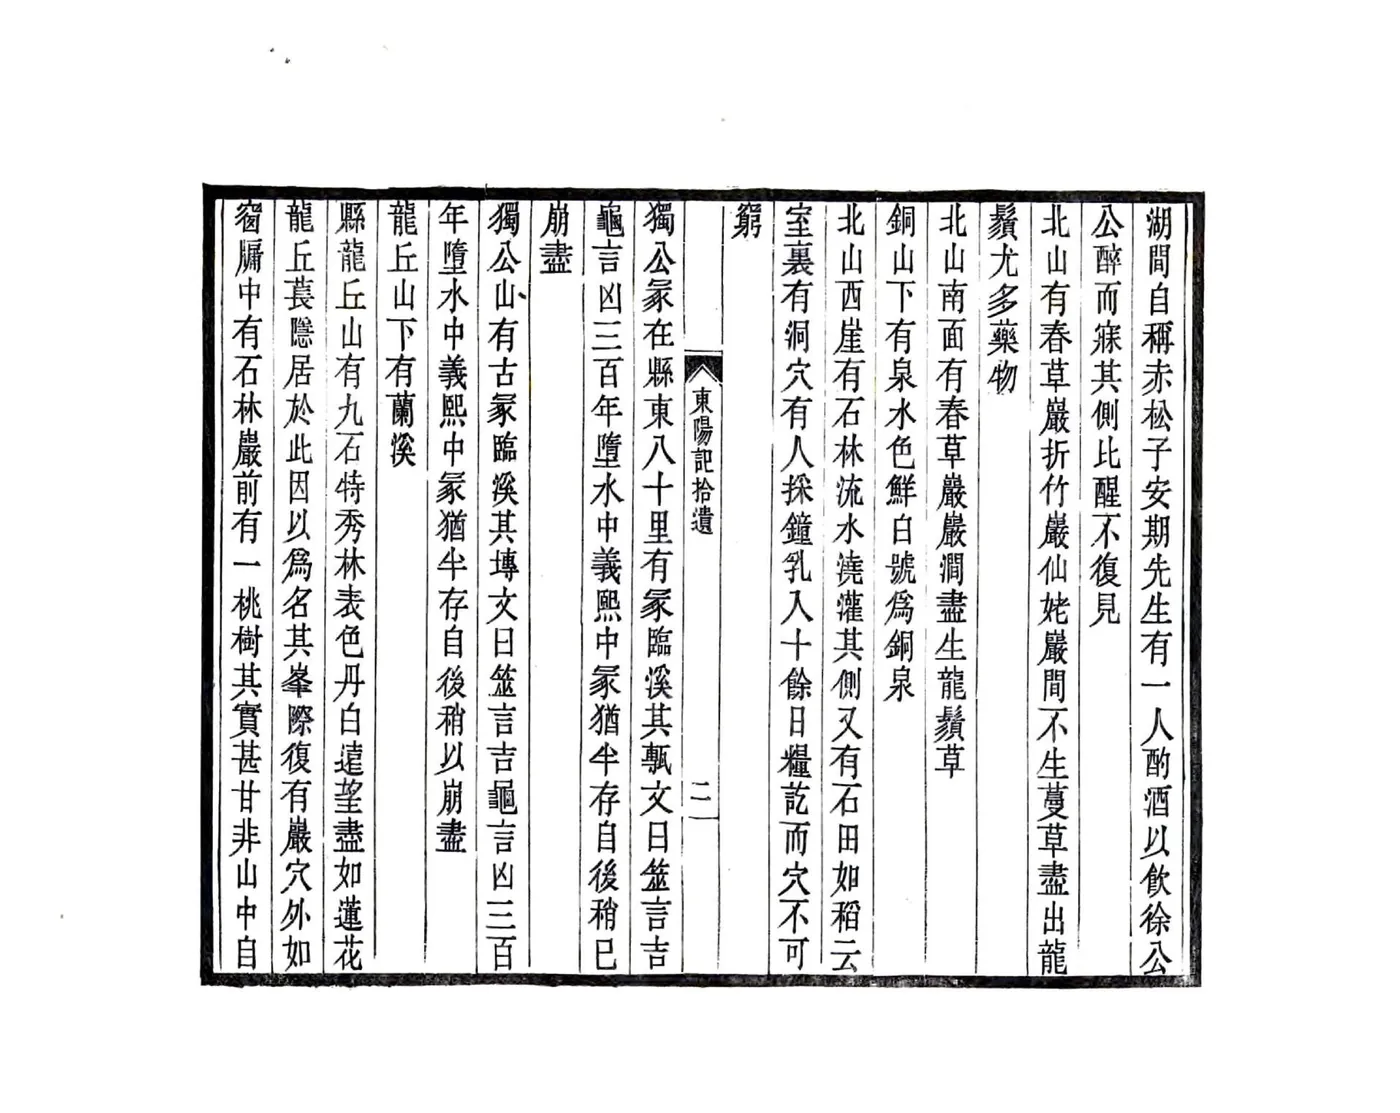 湖間自稱赤松子安期先生有一人酌酒以飮徐公
公醉而寐其側比醒不復見
北山有春草巖折竹巖仙姥巖間不生蔓草盡出龍
鬚尤多藥物
北山南面有春草巖巖澗盡生龍鬚草
銅山下有泉水色鮮白號爲銅泉
北山西崖有石林流水澆灌其側又有石田如稻云
室裏有洞穴有人採鐘乳入十餘日糧訖而穴不可
窮
東陽記拾遺
二
獨公冢在縣東八十里有冢臨溪其甎文曰筮言吉
龜言凶三百年墮水中義熙中冢猶半存自後稍已
崩盡
獨公山有古冢臨溪其塼文曰筮言吉龜言凶三百
年墮水中義熙中冢猶半存自後稍以崩盡
龍丘山下有蘭溪
縣龍丘山有九石特秀林表色丹白遠望盡如蓮花
龍丘萇隱居於此因以爲名其峯際復有巖穴外如
窗牖中有石林巖前有一桃樹其實甚甘非山中自